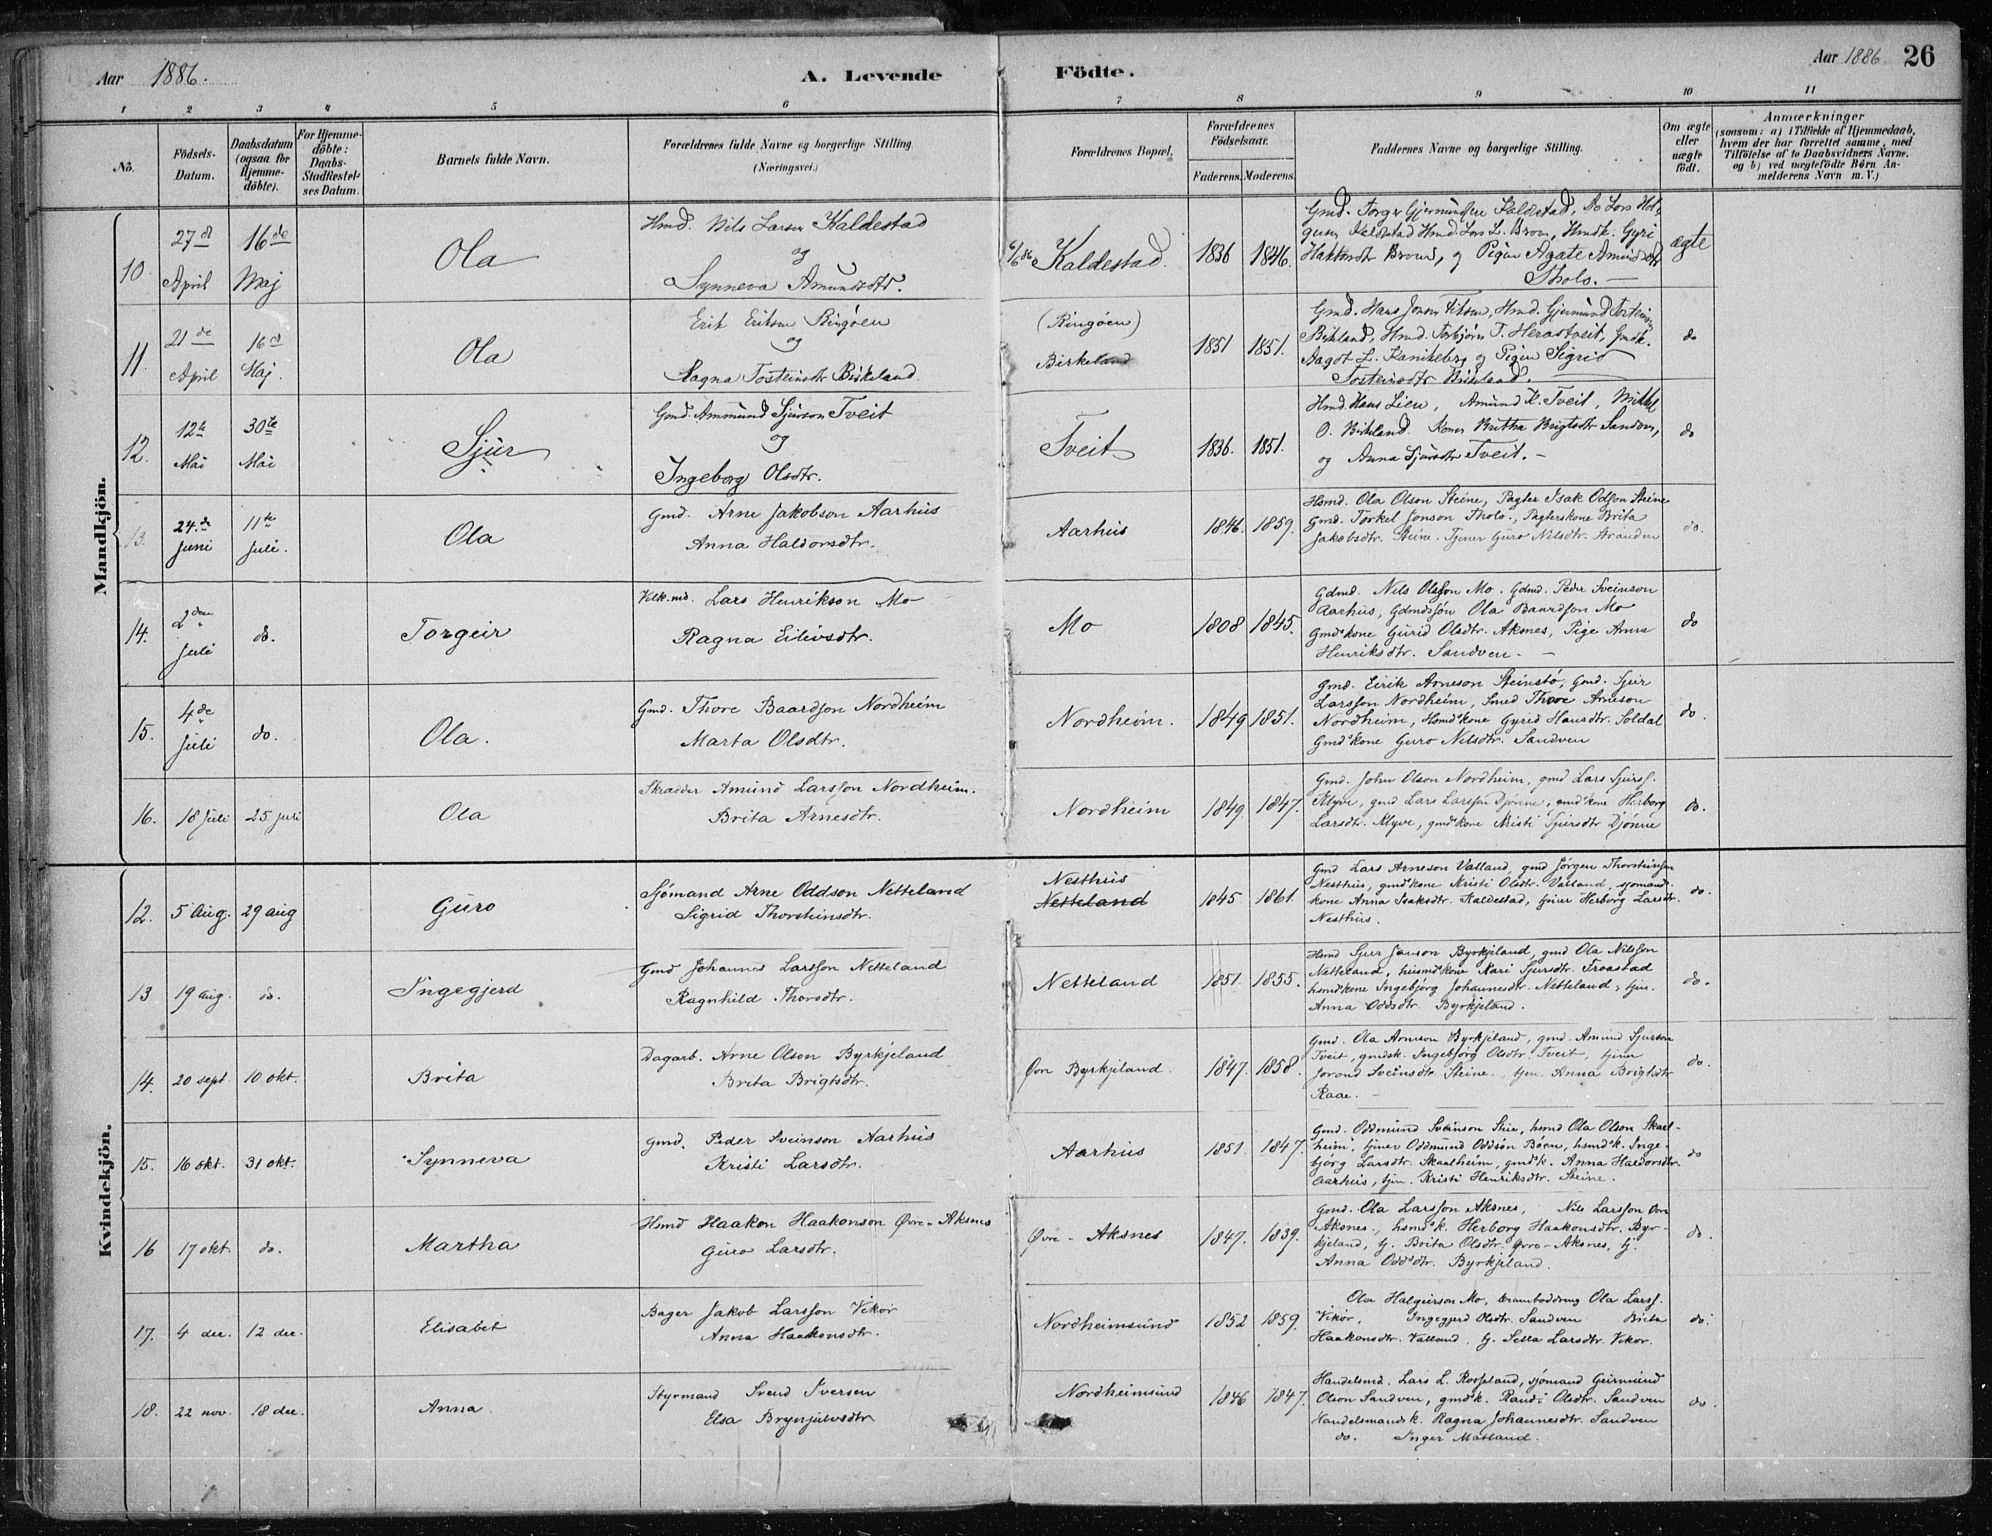 Aar 1886.
A. Levende Födte.
Aar 1886 26
1 2 3 4 5 6 7 8 9 10 11
No.
Födsels-Datum.
Daabsdatum (ogsaa for Hjemmedöbte).
For Hjemmedöbte: Daabs-Stadfestelses Datum.
Barnets fulde Navn.
Forældrenes fulde Navne og borgerlige Stilling.
(Næringsvei.)
Forældrenes Bopæl.
Forældrenes Födselsaar.
Faderens. Moderens.
Faddernes Navne og borgerlige Stilling.
Om ægte eller uægte födt.
Anmærkninger
(saasom: a) i Tilfælde af Hjemmedaab,
hvem der har forrettet samme, med
Tilföielse af to Daabsvidners Navne.
og b) ved uægtefödte Börn Anmelderens Navn m. V.)
Mandkjön.
10. 27d April 16de Maj Ola
Hmd. Nils Larsen Kaldestad
og
Synneva Amundsdtr.
Kaldestad 1836 1846.
Gmd. Torger Gjermundsen Kaldestad,
Kaldestad Hmd. Lars L. Broen, Hmdk. Gyri
Broen, og Pigen Agate Amundsdtr
Tholo. —
ægte
11. 21de April 16d Maj. Ola
Erik Erikson Ringöen
og
Ragna Tosteinsdtr Birkeland.
(Ringöen)
Birkeland
1851 1851.
Gmd. Hans Jonsen, Hmd. Gjermund
Birkeland, Hmd. Torbjörn T. Herastveit, Gmdk.
Aagot L. Kanikeberg og Pigen Sigrid
Tosteinsdtr Birkeland.
do
12. 12te Mai 30te Mai Sjur
Gmd. Ammund Sjurson Tveit
og
Ingeborg Olsdtr.
Tveit 1836. 1851.
Hmd. Hans Lien, Amund K. Tveit, Mikkel
O. Birkeland. Konen Britha Brigtsdtr Sandven,
og Anna Sjursdtr Tveit. —
do
13. 24.de Juni 11te Juli. Ola
Gmd. Arne Jakobson Aarhus
Anna Haldorsdtr.
Aarhus 1846. 1859.
Hsmd. Ola Olson Steine, Pagter Isak Odson Steine
Gmd. Torkel Jonson Tholo., Pagterskone Brita
Jakobsdtr. Steine. Tjener Guro Nilsdtr. Stranden
do.
14. 2den Juli do. Torgeir
Kirk.md. Lars Henrikson Mo
Ragna Eilivsdtr.
Mo 1808 1845.
Gdmd. Nils Olsson Mo. Gdmd. Peder Sveinson
Aarhus, Gdmdssön Ola Baardson Mo
Gmd'kone Gurid Olsdtr. Aksnes, Pige Anna
Henriksdtr. Sandven. —
do
15. 4de Juli do. Ola.
Gmd. Thore Baardson Nordheim
Marta Olsdtr.
Nordheim. 1849 1851.
Gmd. Eirik Arneson Steinstö, Gmd. Sjur
Larsson Nordheim, Smed Thore Arneson
Nordheim, Hsmd'kone Gyrid Hansdtr. Soldal
Gmd'kone Guro Nilsdtr. Sandven
do.
16. 18 Juli 25 juli Ola
Skræder Amund Larsson Nordheim.
Brita Arnesdtr.
Nordheim 1849 1847.
Gmd. John Olson Nordheim, gmd Lars Sjurss.
Klyve, gmd Lars Larsson Djönne, gmd'kone Herborg
Larsdtr. Klyve, gmd'kone Kristi Sjursdtr Djönne
do.
Kvindekjön.
12. 5 Aug. 29 aug Guro
Sjömand Arne Oddson Netteland
Sigrid Thorsteinsdtr.
Nesthus
Netteland
1845 1861.
Gmd Lars Arneson Valland, gmd Jörgen Thorsteinsen
Nesthus, gmd'kone Kristi Olsdtr. Valland, sjömand-
kone Anna Isaksdtr. Kaldestad, tjener Herborg Larsdtr.
Nesthus.
do.
13 19 aug. do. Ingegjerd
Gmd Johannes Larsson Netteland
Ragnhild Thorsdtr.
Netteland 1851. 1855.
Hsmd Sjur Janson Byrkjeland, gmd Ola Nilsson
Netteland, husmd'kone Kari Sjursdtr. Froastad
hsmd'kone Ingebjörg Johannesdtr. Netteland, tjen.
Anna Oddsdtr. Byrkjeland.
do.
14. 20 sept 10 okt. Brita
Dagarb. Arne Olson Byrkjeland
Brita Brigtsdtr.
Övre Byrkjeland. 1847. 1858.
Gmd. Ola Arneson Byrkjeland, gmd. Amund Sjurson
Tveit, gmdsk. Ingebjörg Olsdtr. Tveit, tjener
Jorond Sveinsdtr. Steine, tjen. Anna Brigtsdtr
Raae. —
do.
15. 16 okt. 31 okt. Synneva
Gmd. Peder Sveinson Aarhus
Kristi Larsdtr.
Aarhus 1851. 1847.
Gmd. Oddmund Sveinson Skeie, hsmd Ola Olson Skaal-
heim, tjener Oddmund Oddsön Böen, hsmd'k. Inge-
björg Larsdtr. Skaalheim, gmd'k. Anna Haldorsdtr.
Aarhus, tjen. Kristi Henriksdtr. Steine.
do
16 17 okt. do. Martha
Hsmd Haakon Haakonson Øvre-Aksnes
Guro Larsdtr.
Øvre - Aksnes 1847. 1839.
Gmd. Ola Larsson Aksnes, Nils Larsson Øvre
Aksnes., hsmd'k. Herborg Haakonsdtr. Byr-
kjeland, tj. Brita Olsdtr. Øvre-Aksnes, tj.
Anna Oddsdtr. Byrkjeland.
do.
17. 4 dec. 12 dec. Elisabet
Bager Jakob Larsson Vikör
Anna Haakonsdtr.
Nordheimsund 1852 1859.
Ola Halgeirson Mo, Ola Larss.
Vikör, Ingegjerd Olsdtr. Sandven Brita
Haakonsdtr. Valland, tj. Sella Larsdtr. Vikör.
do.
18. 22 nov. 18 dec. Anna
Styrmand Svend Iversen
Elsa Brynjulvsdtr
Nordheimsund 1846 1847.
Handelsmd. Lars L. Rosseland, sjömand Geirmund
Olson Sandven, gmd'k. Randi Olsdtr. Sandven
Handelsmands k. Ragna Johannesdtr. Sandven
do. Inger Matland.
do.